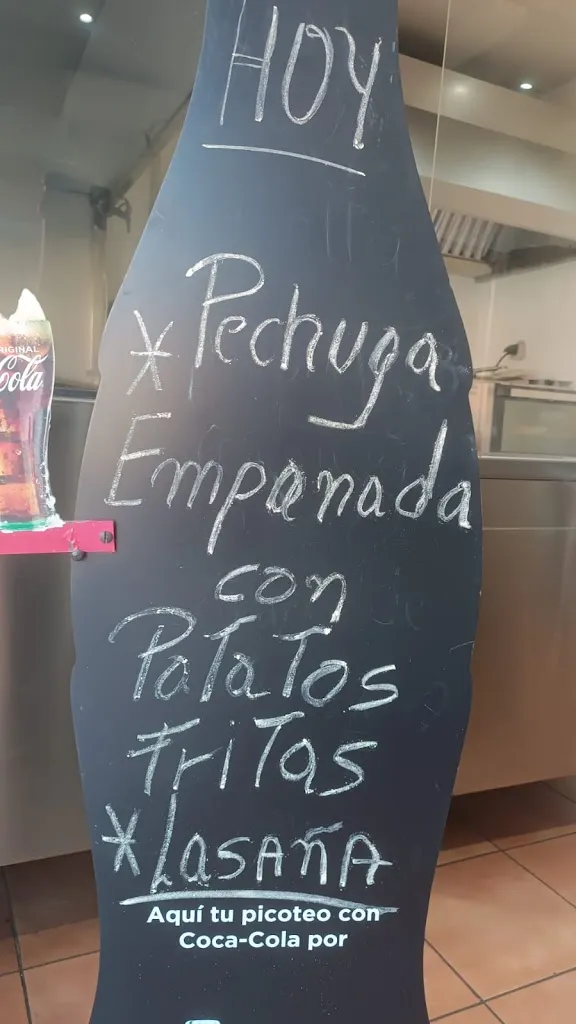 HOY
* Pechuga
Empanada
con
Patatos
Fritas
* LASAÑA
Aquí tu picoteo con
Coca-Cola por
ORIGINAL
Cola